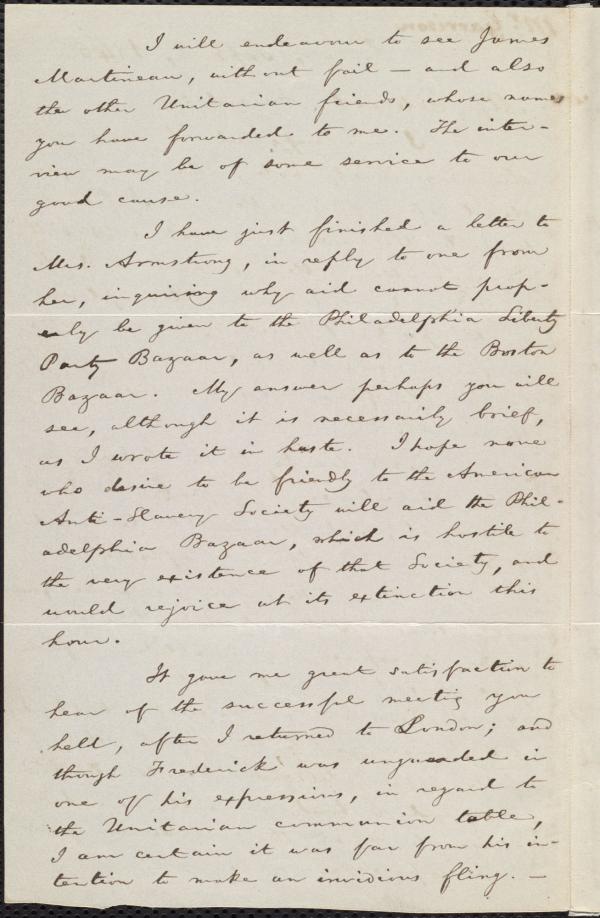 I will endeavour to see James
Martineau, without fail — and also
the other Unitarian friends, whose names
you have forwarded to me. The inter-
view may be of some service to our
good cause.
I have just finished a letter to
Mrs. Armstrong, in reply to one from
her, inquiring why aid cannot prop-
erly be given to the Philadelphia Liberty
Party Bazaar, as well as to the Boston
Bazaar. My answer perhaps you will
see, although it is necessarily brief,
as I wrote it in haste. I hope none
who desire to be friendly to the American
Anti-Slavery Society will aid the Phil-
adelphia Bazaar, which is hostile to
the very existence of that Society, and
would rejoice at its extinction this
hour.
It gave me great satisfaction to
hear of the successful meeting you
held, after I returned to London; and
though Frederick was unguarded in
one of his expressions, in regard to
the Unitarian communion table,
I am certain it was far from his in-
tention to make an invidious fling. —